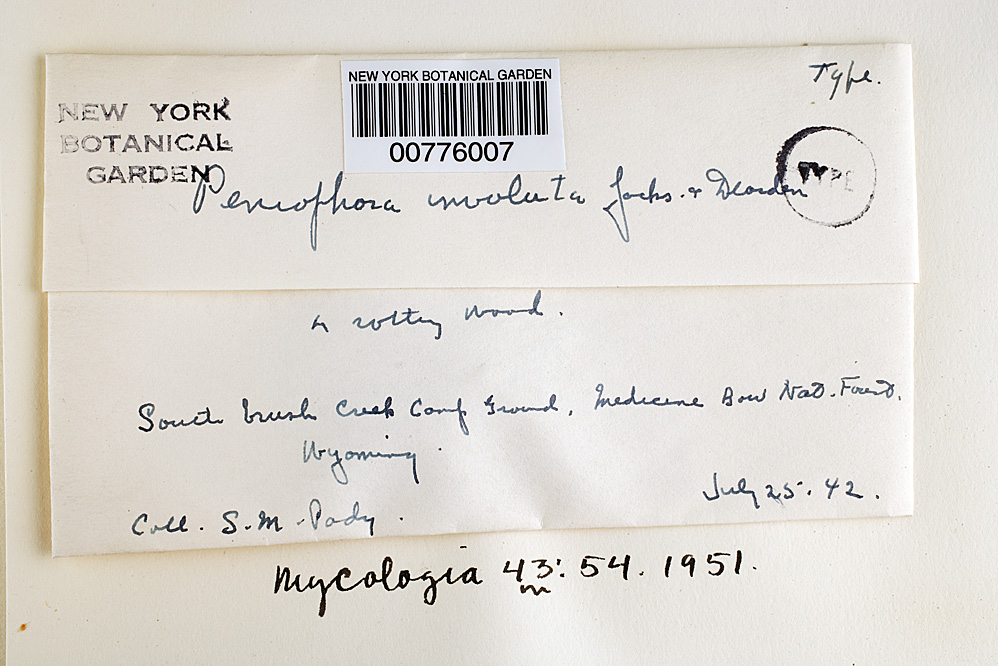 Type.
NEW YORK BOTANICAL GARDEN
00776007
NEW YORK
BOTANICAL
GARDEN
TYPE
Peniophora involuta Jacks. & Dearden
rotten wood.
South brush Creek Camp Ground, Medicine Bow Nat. Forest.
Wyoming.
July 25. 42.
Coll. S. M. Pady.
Mycologia 43: 54. 1951.